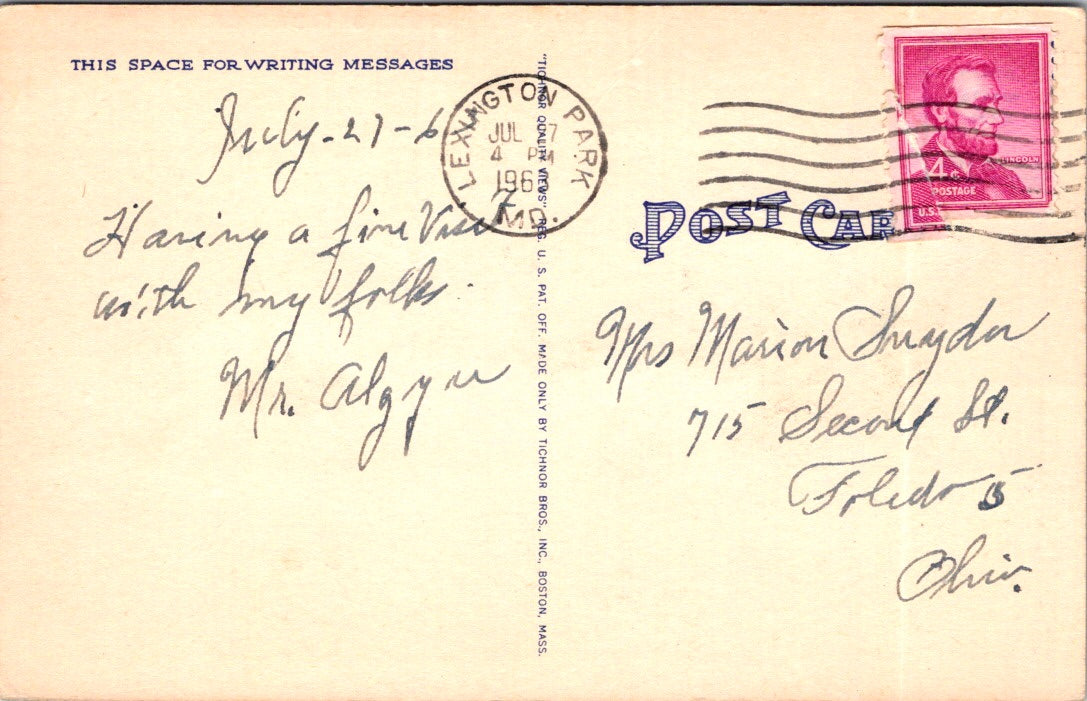 THIS SPACE FOR WRITING MESSAGES
July-27-6
Having a fine Visit
with my folks.
Mr.
"TICHNOR QUALITY VIEWS" REG. U. S. PAT. OFF. MADE ONLY BY TICHNOR BROS., INC., BOSTON, MASS.
LEXINGTON PARK
JUL 27
4 PM
196
MD.
LINCOLN
4¢
POSTAGE
U.S.
POST CAR
Mrs Marion Snyder
715 Second St.
Toledo 5
Ohio.